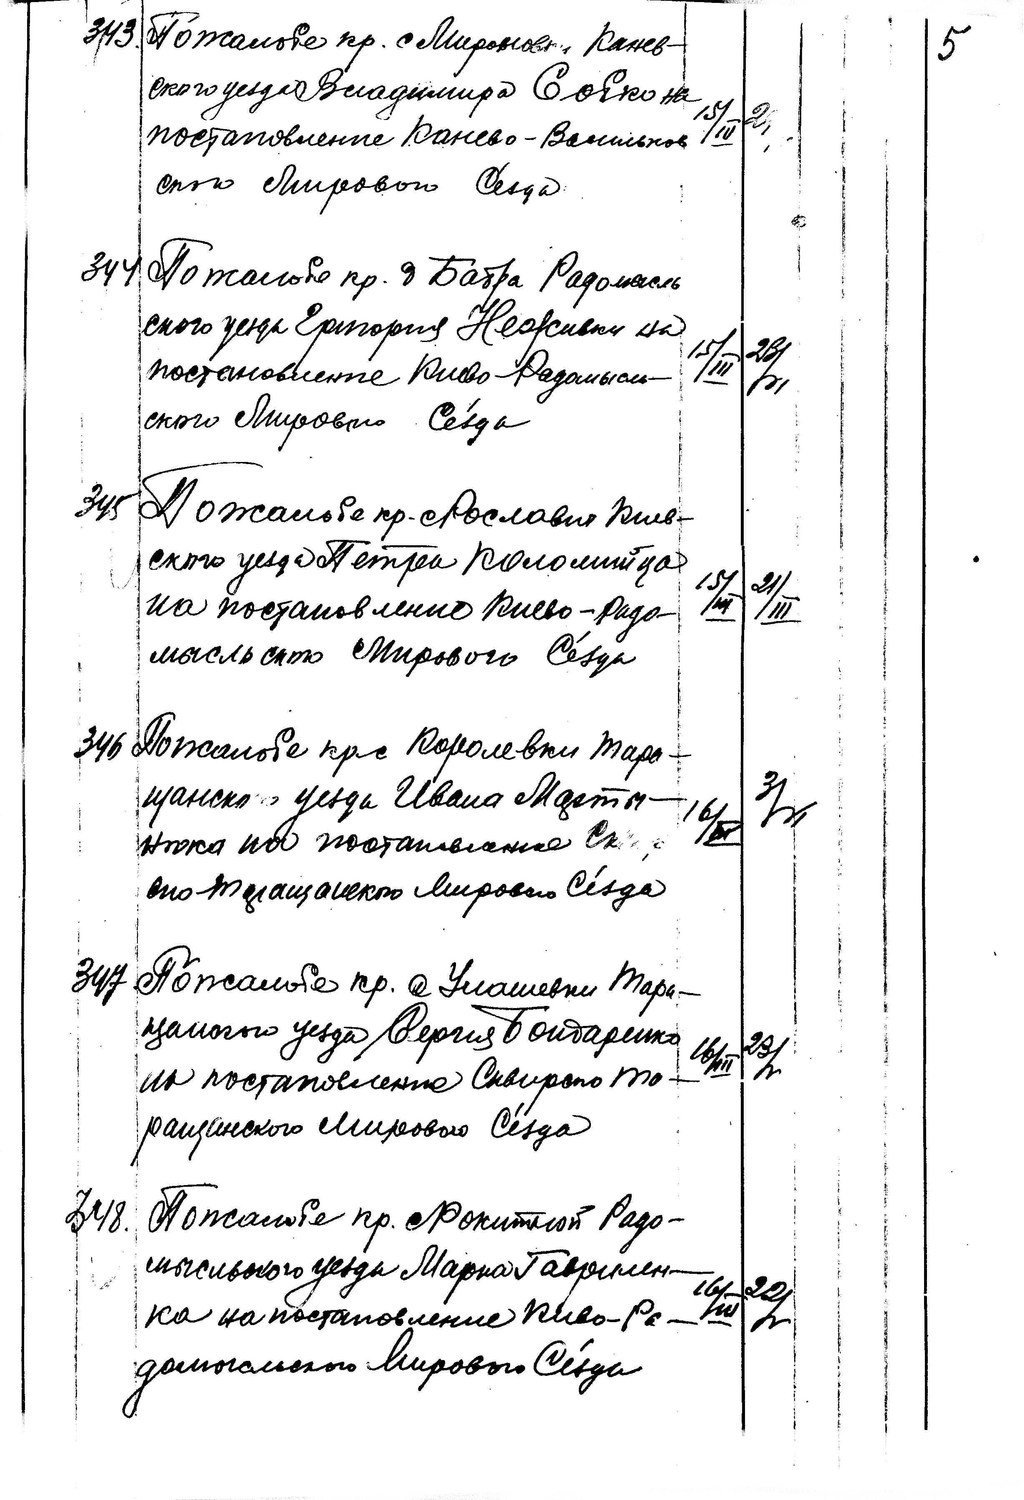 5
343. По жалобе кр. с Мироновки Канев-
ского уезда Владимира Собко на
постановление Канево-Васильков
ского Мирового Сезда
15/III
344 По жалобе кр. д Радомысль
ского уезда Григория на
постановление Киево-Радомысль-
ского Мирового Сезда
15/III 23/VI
345 По жалобе кр. с Рославич Киев-
ского уезда Петра Коломийца
на постановление Киево-Радо-
мысльского Мирового Сезда
15/III 21/III
346 По жалобе кр с Королевки Тара-
щанского уезда Ивана Марты-
нюка на постановление
ско-Таращанского Мирового Сезда
16/III 3/VI
347 По жалобе кр. с Улашевки Тара-
щанского уезда Сергия Бондаренко
на постановление Сквирско Та-
ращанского Мирового Сезда
16/III 23/V
348. По жалобе кр. с Рокитной Радо-
мысльского уезда Марка Гаврилен-
ка на постановление Киево-Ра-
домысльского Мирового Сезда
16/III 22/V